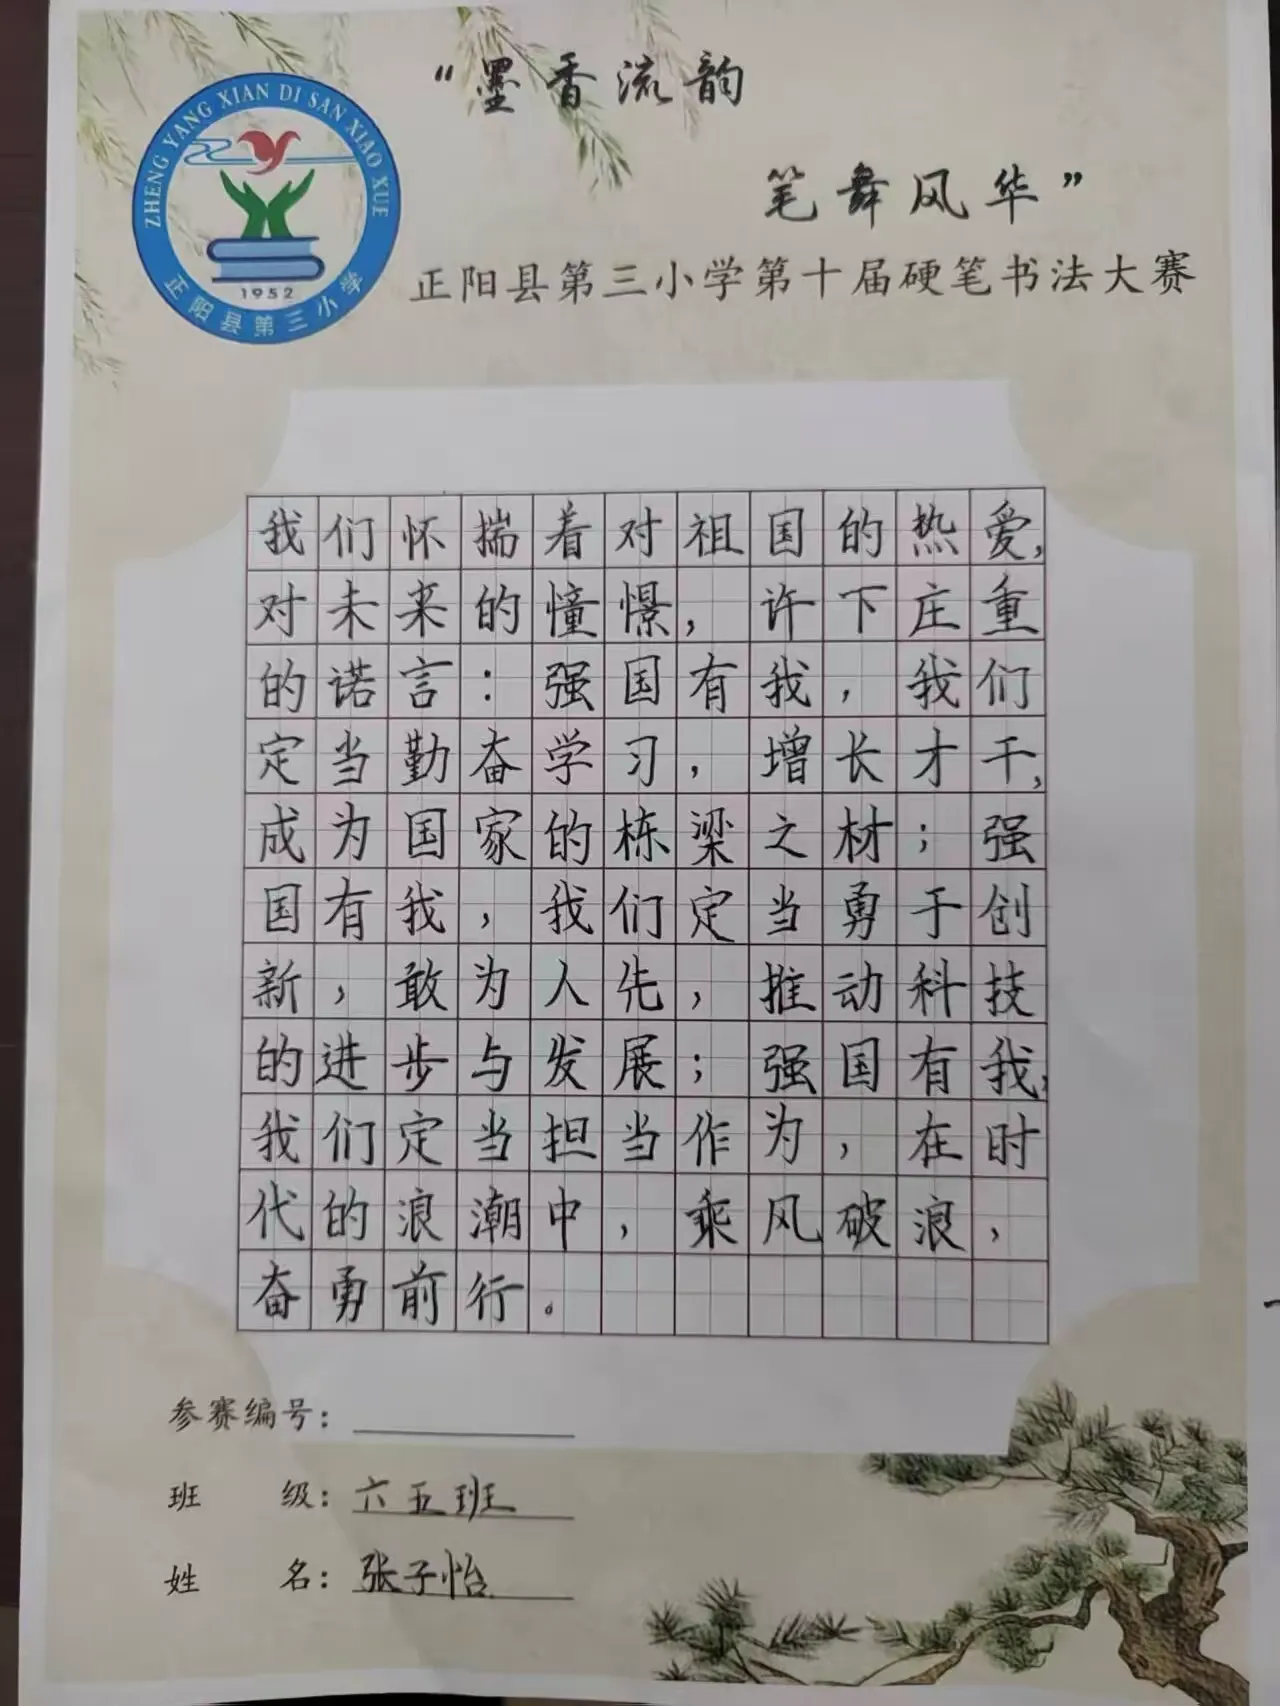 “墨香流韵
笔舞风华”
ZHENG YANG XIAN DI SAN XIAO XUE
1952
正阳县第三小学
正阳县第三小学第十届硬笔书法大赛
我们怀揣着对祖国的热爱,
对未来的憧憬，许下庄重
的诺言：强国有我，我们
定当勤奋学习，增长才干,
成为国家的栋梁之材；强
国有我，我们定当勇于创
新，敢为人先，推动科技
的进步与发展；强国有我,
我们定当担当作为，在时
代的浪潮中，乘风破浪，
奋勇前行。
参赛编号：
班 级：六五班
姓 名：张子怡